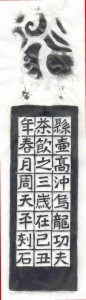 縣壺高沖烏龍功夫
茶飲之三歲在己丑
年春月周天平刻石